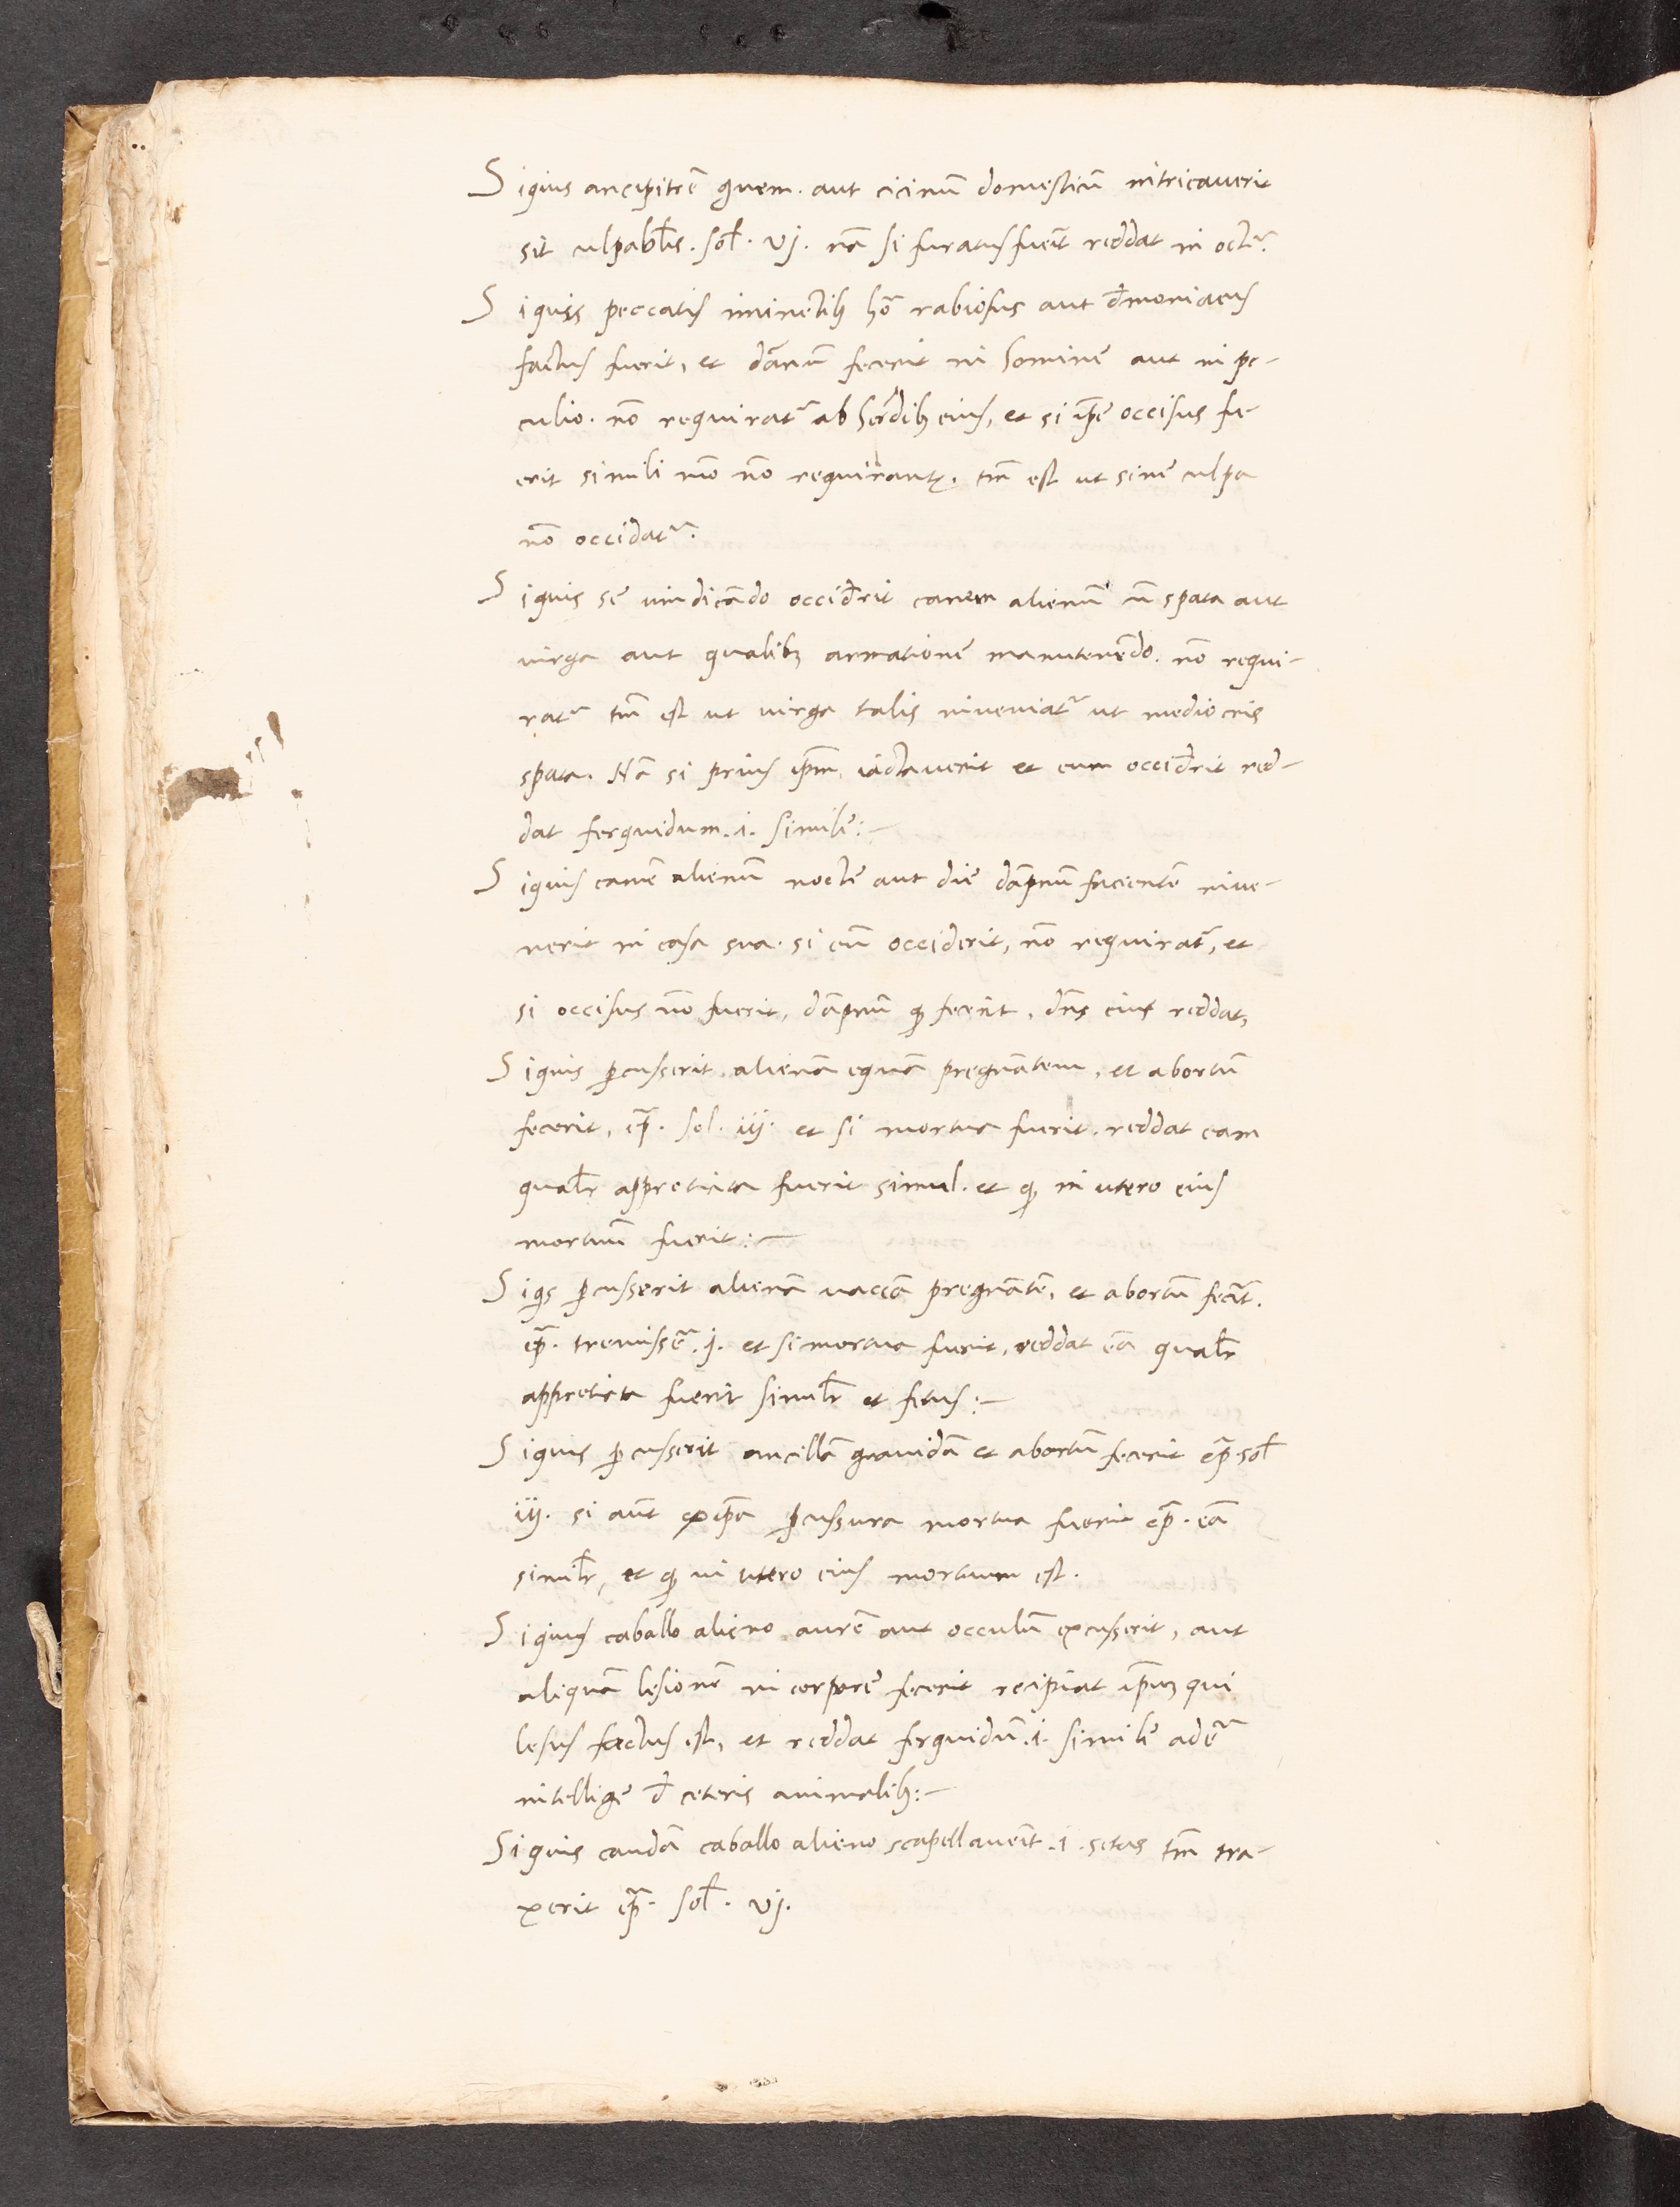 Siquis ancipitrē gruem. aut cicinū domesticū intricaverit
sit culpabl̄is. sol̄. vj. nā si furatus fuerit reddat in octū.
Siquis peccatis iminētib; hō rabiosus aut d̄moniacus
factus fuerit, et dānū fecerit in hominē aut in pe-
culio. nō requirat᷑ ab her̄dib; eius, et si ip̄e occisus fu-
erit simili mō nō requirant᷑. tm̄ est ut sinē culpa
nō occidat᷑.
Siquis sē vindicādo occid̄rit canem alienū cū spata aut
virga aut qualib; armationē manutenēdo. nō requi-
rat᷑ tm̄ est ut virga talis inveniat᷑ ut mediocris
spata. Nā si prius ip̄m iactaverit et eum occid̄rit red-
dat ferquidum. i. similē:-
Siquis canē alienū noctē aut diē dāpnū facientē inve-
nerit in casa sua. si eū occiderit, nō requirat᷑, et
si occisus nō fuerit, dāpnū qd̄ fecerit, dn̄s eius reddat,
Siquis p̄cusserit alienā equā pregnātem, et abortū
fecerit, cp̄. sol. iij. et si mortua fuerit. reddat eam
qual̄r appretiata fuerit simul. et qd̄ in utero eius
mortuū fuerit:-
Siqis p̄cusserit alienā vaccā pregnātē, et abortū fec̄it.
cp̄. tremissē. j. et si mortua fuerit, reddat eā qual̄r
appretiata fuerit simil̄r et fetus:-
Siquis p̄cusserit ancillā gravidā et abortū fecerit cp̄. sol̄
iij. si aūt ex ip̄a p̄cussura mortua fuerit cp̄. eā
simil̄r, et qd̄ in utero eius mortuum est.
Siquis caballo alieno aurē aut occulū excusserit, aut
aliquā lesionē in corporē fecerit recipiat ip̄um qui
lesus factus est, et reddat ferquidū. i. similē adē
intelligē d̄ ceteris animalib;:-
Siquis caudā caballo alieno scapellaverit. i. setas tm̄ tra-
xerit cp̄. sol̄. vj.